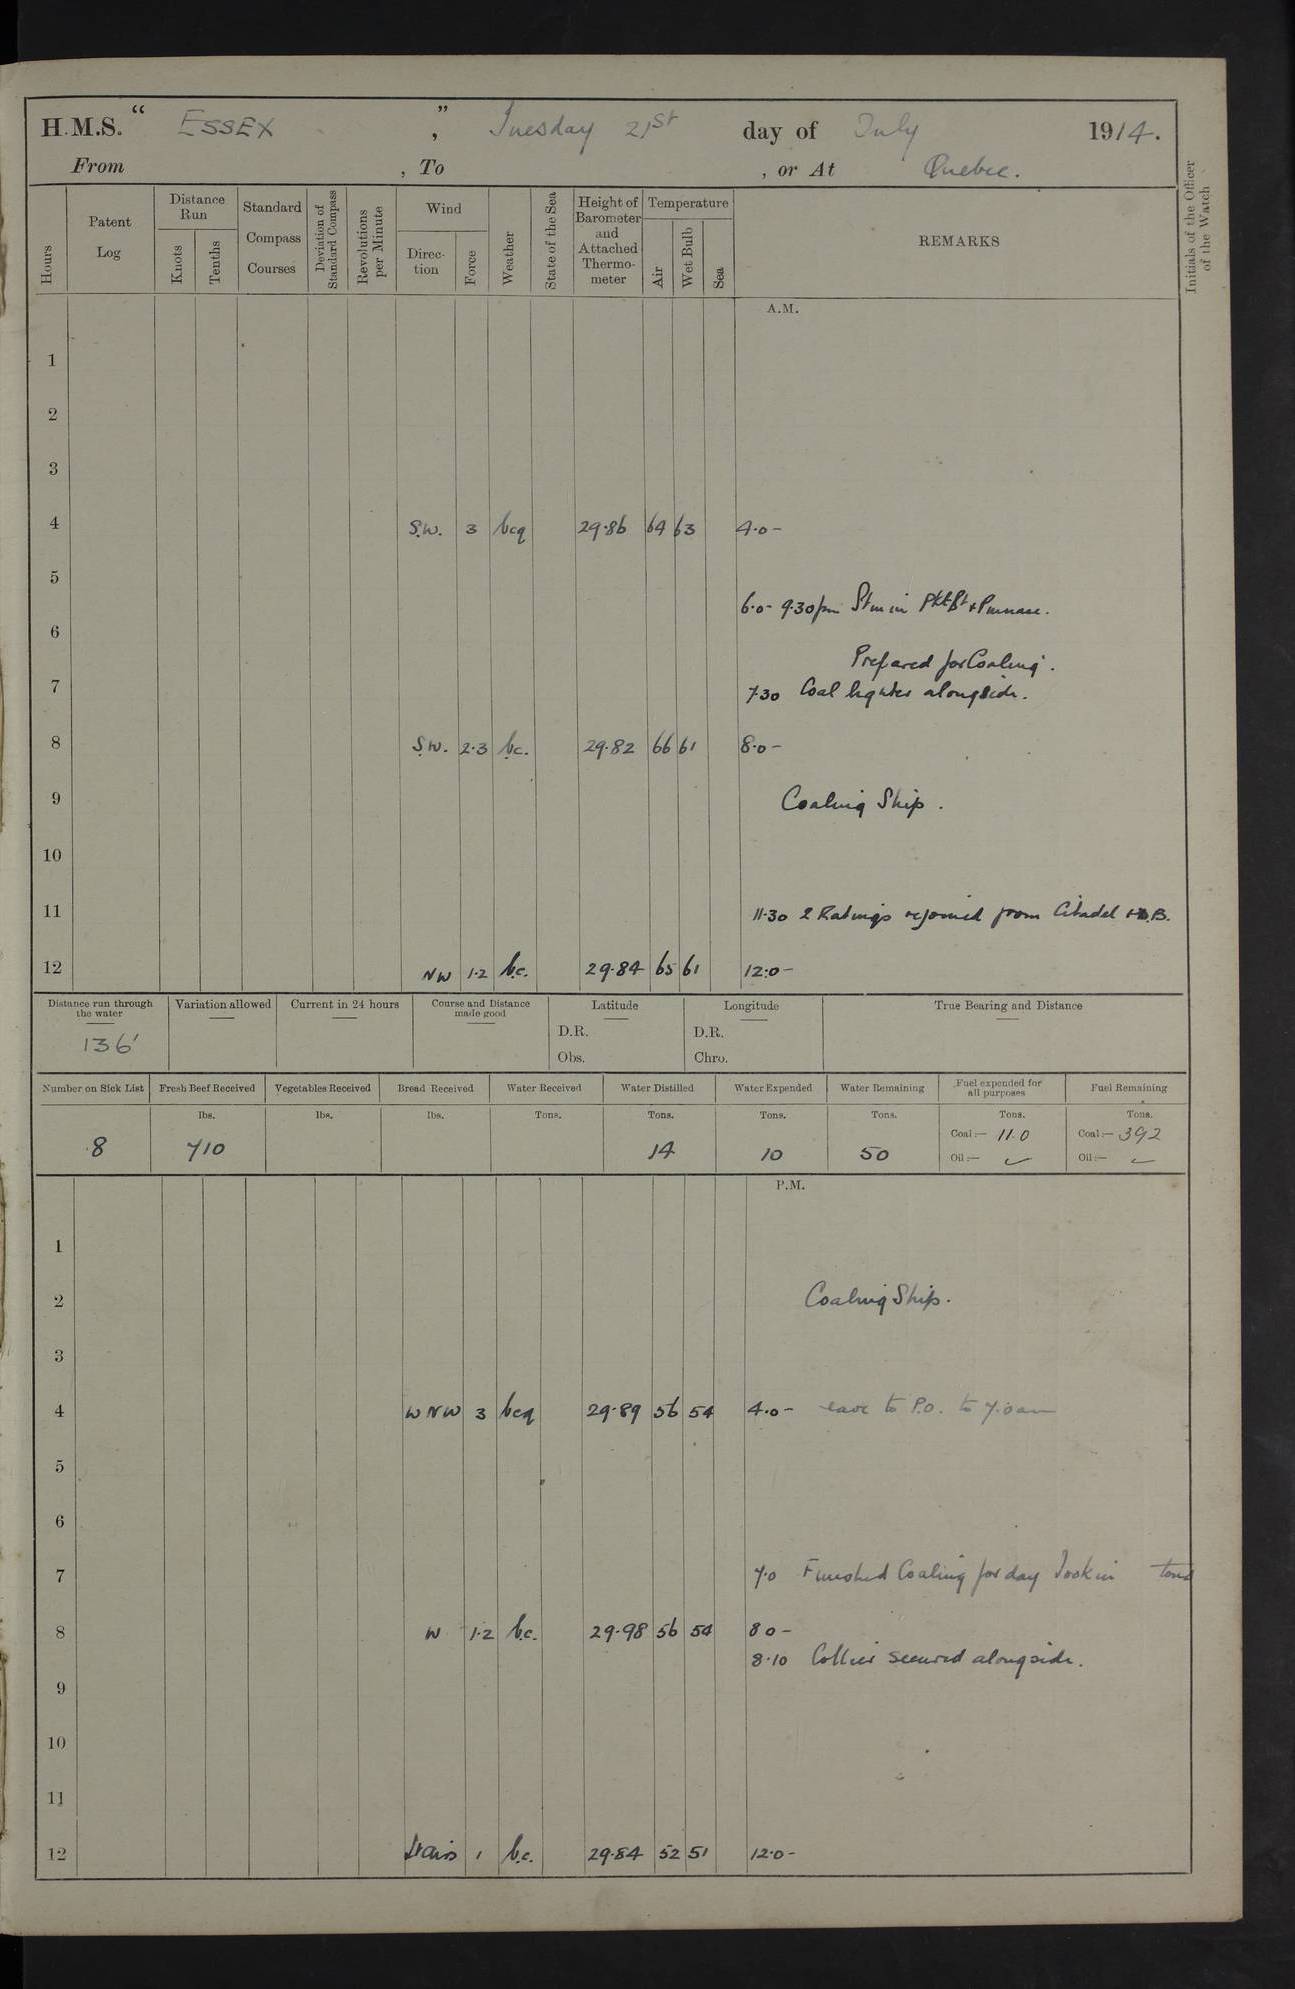 H.M.S. “ ESSEX ” , Tuesday 21st day of July 1914.
From , To , or At Quebec.
Hours
Patent Log
Distance Run
Knots
Tenths
Standard Compass Courses
Deviation of Standard Compass
Revolutions per Minute
Wind
Direc-tion
Force
Weather
State of the Sea
Height of Barometer and Attached Thermo-meter
Temperature
Air
Wet Bulb
Sea
REMARKS
Initials of the Officer of the Watch
A.M.
1
2
3
4 S.W. 3 bcq 29.86 64 63 4.0-
5
6.0- 9.30pm Stm in Pkt Bt & Pinnace.
6
Prepared for Coaling.
7 7.30 Coal lighter alongside.
8 S.W. 2.3 b.c. 29.82 66 61 8.0-
9 Coaling Ship.
10
11 11.30 2 Ratings rejoined from Citadel
12 NW 1.2 b.c. 29.84 65 61 12.0-
Distance run through the water
Variation allowed
Current in 24 hours
Course and Distance made good
Latitude
Longitude
True Bearing and Distance
D.R. D.R.
136'
Obs. Chro.
Number on Sick List
Fresh Beef Received
Vegetables Received
Bread Received
Water Received
Water Distilled
Water Expended
Water Remaining
Fuel expended for all purposes
Fuel Remaining
lbs. lbs. lbs. Tons. Tons. Tons. Tons. Tons. Tons.
8 710 14 10 50 Coal:— 11.0 Coal:— 392
Oil:— Oil:—
P.M.
1
2 Coaling Ship.
3
4 WNW 3 bcq 29.89 56 54 4.0- leave to P.O. to 7.0am
5
6
7 7.0 Finished Coaling for day Took in tons
8 W 1.2 b.c. 29.98 56 54 8 0-
8.10 Collier secured alongside.
9
10
11
12 Lt airs 1 b.c. 29.84 52 51 12.0-